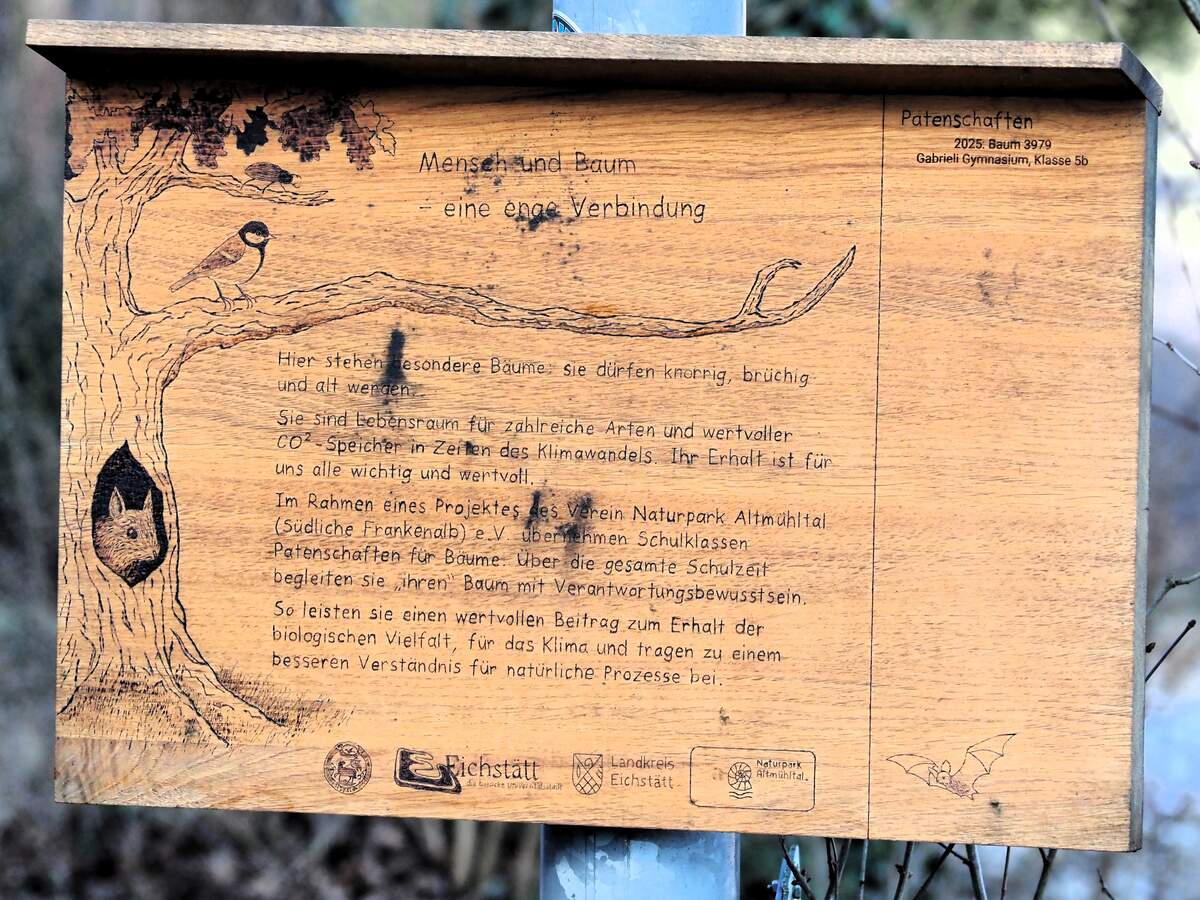 Mensch und Baum
- eine enge Verbindung
Hier stehen besondere Bäume: sie dürfen knorrig, brüchig
und alt werden.
Sie sind Lebensraum für zahlreiche Arten und wertvoller
CO²-Speicher in Zeiten des Klimawandels. Ihr Erhalt ist für
uns alle wichtig und wertvoll.
Im Rahmen eines Projektes des Verein Naturpark Altmühltal
(Südliche Frankenalb) e.V. übernehmen Schulklassen
Patenschaften für Bäume. Über die gesamte Schulzeit
begleiten sie „ihren" Baum mit Verantwortungsbewusstsein.
So leisten sie einen wertvollen Beitrag zum Erhalt der
biologischen Vielfalt, für das Klima und tragen zu einem
besseren Verständnis für natürliche Prozesse bei.
Eichstätt
die barocke Universitätsstadt
Landkreis
Eichstätt
Naturpark
Altmühltal
Patenschaften
2025: Baum 3979
Gabrieli Gymnasium, Klasse 5b